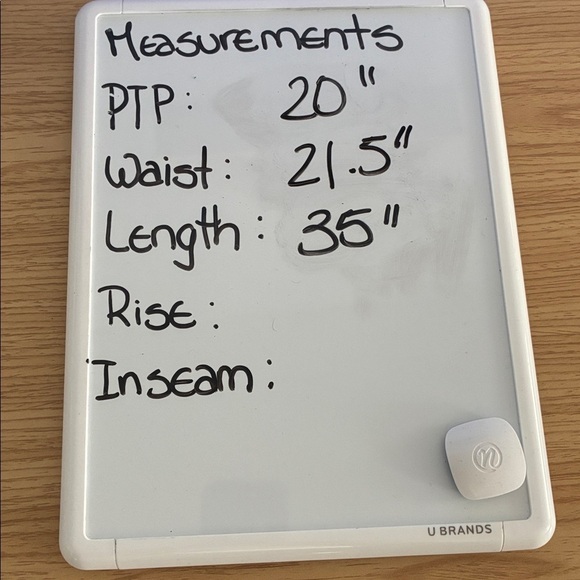 Measurements
PTP: 20"
Waist: 21.5"
Length: 35"
Rise:
Inseam:
n
U BRANDS